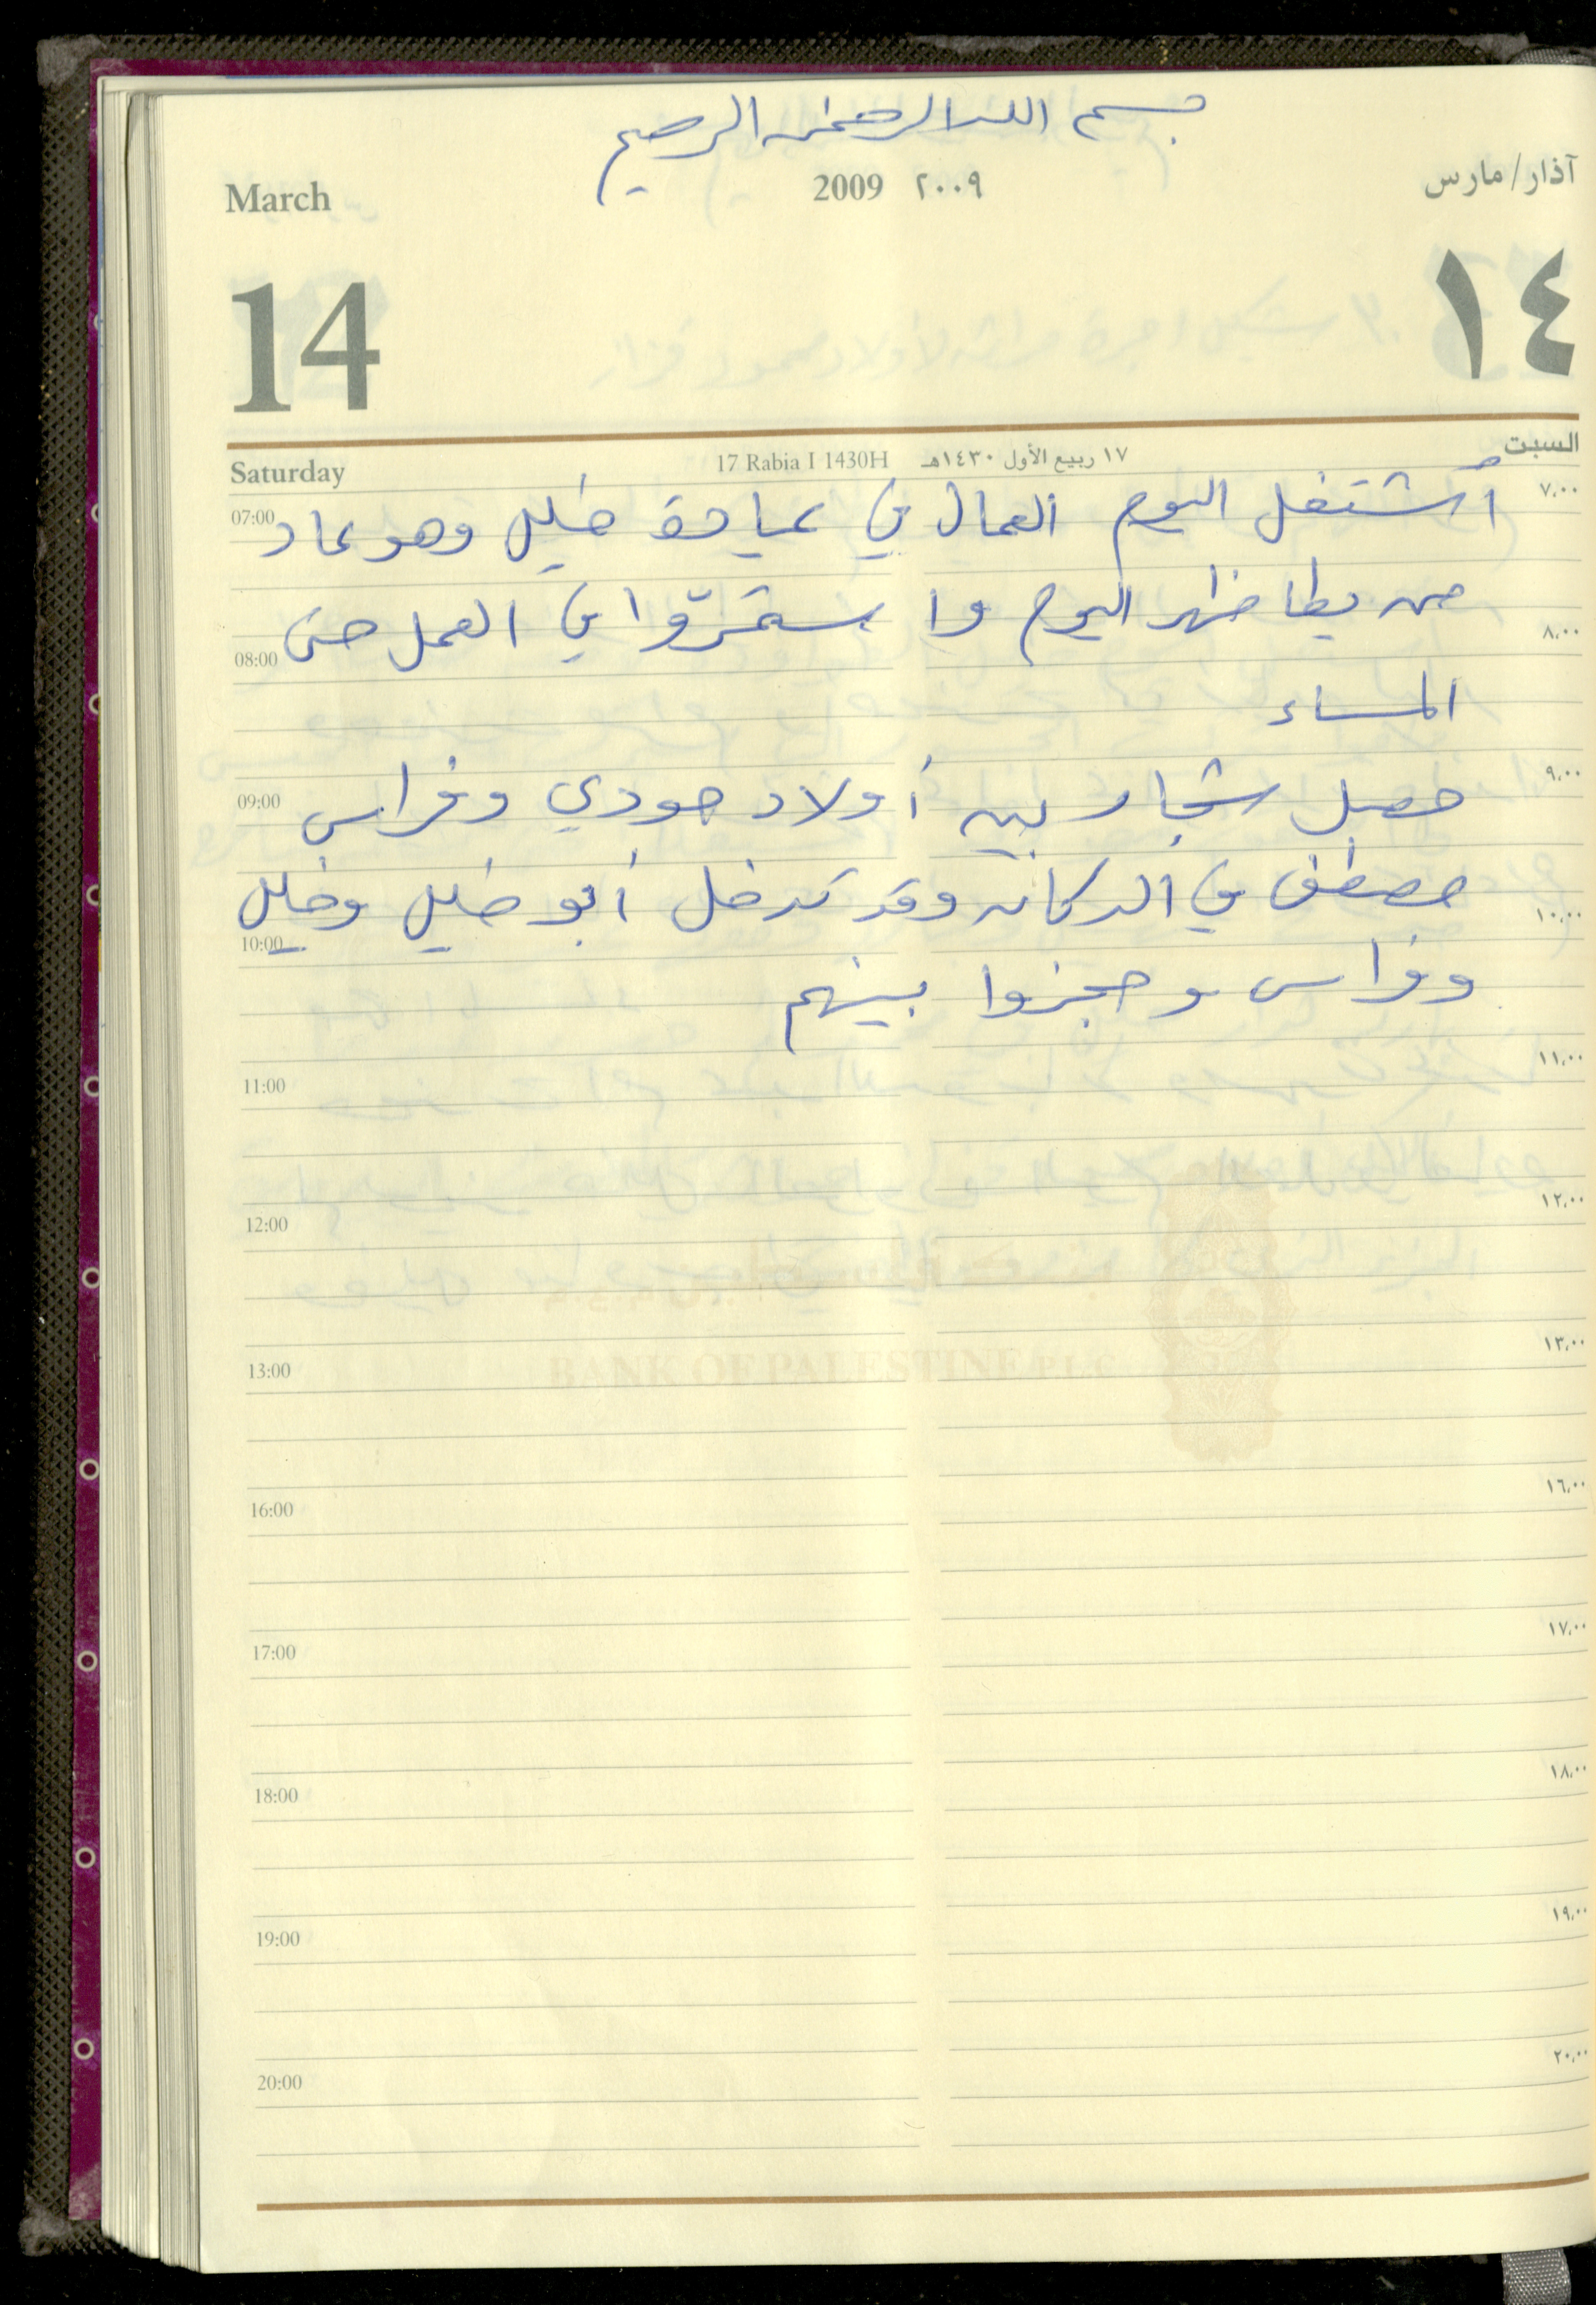 بسم الله الرحمن الرحيم
March 2009 ٢٠٠٩ آذار/مارس
14 ١٤
Saturday 17 Rabia I 1430H ١٧ ربيع الأول ١٤٣٠هـ السبت
أشتغل اليوم العمال في عيادة خليل وهو عاد
07:00 ٧,٠٠
من يطا ظهر اليوم وا ستمرّوا في العمل حتى
08:00 ٨,٠٠
المساء
حصل شجار بين أولاد جودي وفراس
09:00 ٩,٠٠
مصطفى في الدكان وقد تدخل أبو خليل وخليل
10:00 ١٠,٠٠
وفراس وحجزوا بينهم
11:00 ١١,٠٠
12:00 ١٢,٠٠
BANK OF PALESTINE P.L.C
13:00 ١٣,٠٠
16:00 ١٦,٠٠
17:00 ١٧,٠٠
18:00 ١٨,٠٠
19:00 ١٩,٠٠
20:00 ٢٠,٠٠